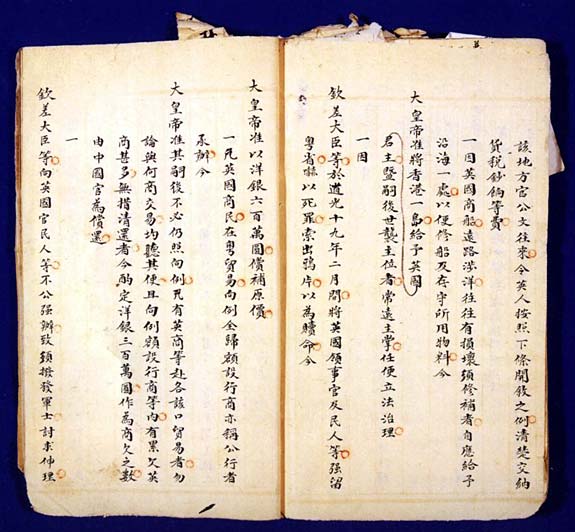 該地方官公文往來令英人按照下條開敘之例清楚交納
貨稅鈔餉等費
一因英國商船遠路涉洋往往有損壞須修補者自應給予
沿海一處以便修船及存守所用物料今
大皇帝准將香港一島給予英國
君主暨嗣後世襲主位者常遠主掌任便立法治理
一因
欽差大臣等於道光十九年二月間將英國領事官及民人等强留
粵省嚇以死罪索出鴉片以為贖命今
大皇帝准以洋銀六百萬圓償補原價
一凡英國商民在粵貿易向例全歸額設行商亦稱公行者
承辦今
大皇帝准其嗣後不必仍照向例凡有英商等赴各該口貿易者勿
論與何商交易均聽其便且向例額設行商等內有累欠英
商甚多無措清還者今酌定洋銀三百萬圓作為商欠之數
由中國官為償還
一
欽差大臣等向英國官民人等不公强辦致須撥發軍士討求伸理